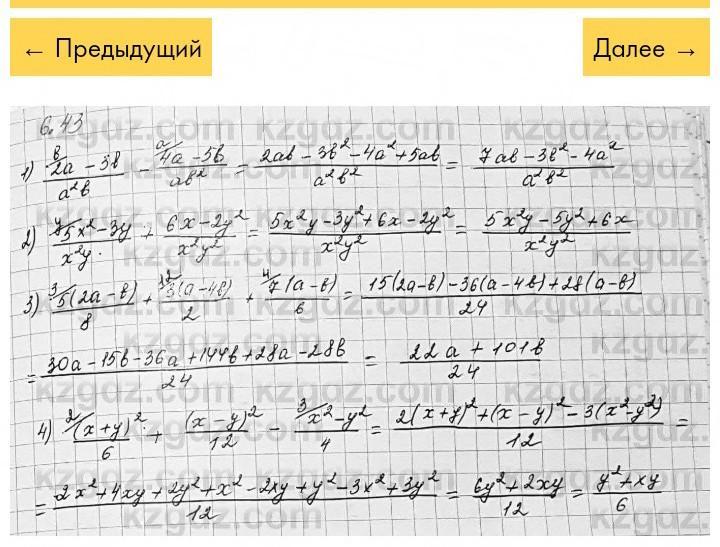 ← Предыдущий
Далее →
6.43
1) в/ (2a - 3в)/(a²в) - a/ (4a - 5в)/(aв²) = (2aв - 3в² - 4a² + 5aв)/(a²в²) = (7aв - 3в² - 4a²)/(a²в²)
2) y/ (5x² - 3y)/(x²y) + (6x - 2y²)/(x²y²) = (5x²y - 3y² + 6x - 2y²)/(x²y²) = (5x²y - 5y² + 6x)/(x²y²)
3) 3/ 5(2a - в)/8 + 12/ 3(a - 4в)/2 + 4/ 7(a - в)/6 = (15(2a - в) - 36(a - 4в) + 28(a - в))/24
= (30a - 15в - 36a + 144в + 28a - 28в)/24 = (22a + 101в)/24
4) 2/ (x + y)²/6 + (x - y)²/12 - 3/ (x² - y²)/4 = (2(x + y)² + (x - y)² - 3(x² - y²))/12 =
= (2x² + 4xy + 2y² + x² - 2xy + y² - 3x² + 3y²)/12 = (6y² + 2xy)/12 = (y² + xy)/6